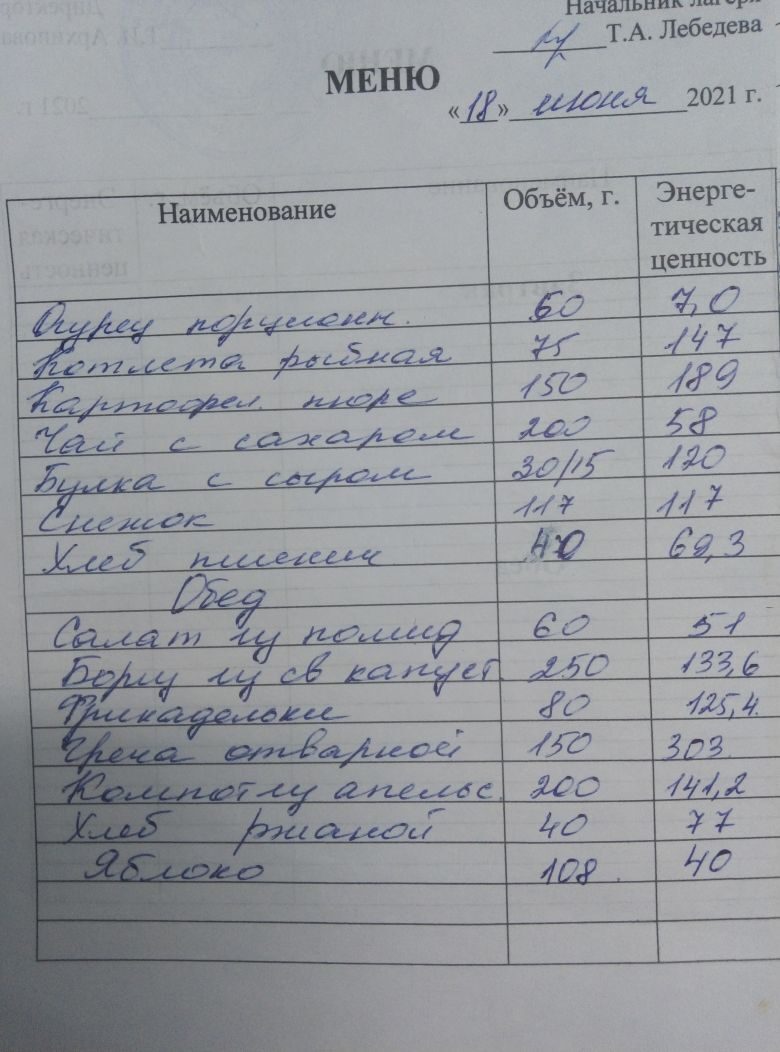 Начальник лагеря
Т.А. Лебедева
МЕНЮ
«18» июня 2021 г.
Наименование Объём, г. Энерге-
тическая
ценность
Огурец порционн. 60 7,0
Котлета рыбная 75 147
Картофел. пюре 150 189
Чай с сахаром 200 58
Булка с сыром 30/15 120
Снежок 117 117
Хлеб пшенич 40 69,3
Обед
Салат из помид 60 51
Борщ из св капуст. 250 133,6
Фрикадельки 80 125,4.
Греча отварной 150 303.
Компот из апельс. 200 141,2
Хлеб ржаной 40 77
Яблоко 108. 40